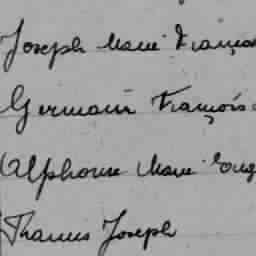 Joseph Marie Françoi
Germain François
Alphonse Marie Eug
Francis Joseph